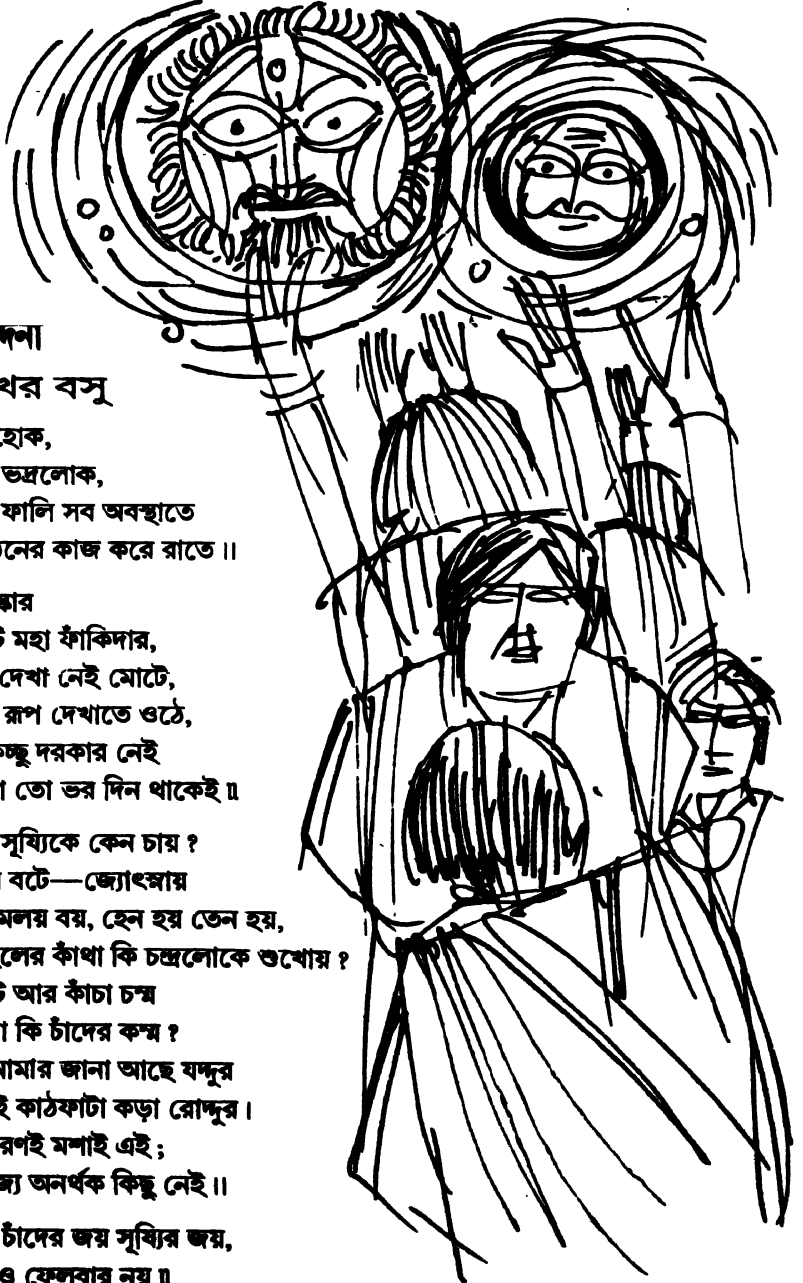 খর বসু
হোক,
ভদ্রলোক,
ফালি সব অবস্থাতে
কাজ করে রাতে।।
মহা ফাঁকিদার,
দেখা নেই মোটে,
রূপ দেখাতে ওঠে,
দরকার নেই
তো ভর দিন থাকেই॥
সূয্যিকে কেন চায়?
বটে—জ্যোৎস্নায়
মলয় বয়, হেন হয় তেন হয়,
কাঁথা কি চন্দ্রলোকে শুখোয়?
আর কাঁচা চম্ম
কি চাঁদের কম্ম?
জানা আছে যদ্দুর
কাঠফাটা কড়া রোদ্দুর।
মশাই এই;
অনর্থক কিছু নেই।।
চাঁদের জয় সূয্যির জয়,
ফেলবার নয়॥